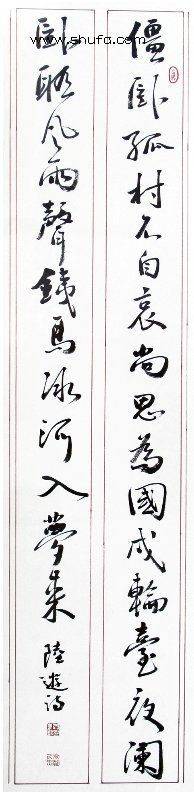 www.shufa.com
僵臥孤村不自哀尚思為國戍輪臺夜瀾
臥聽風雨聲鐵馬冰河入夢來
陸遊詩